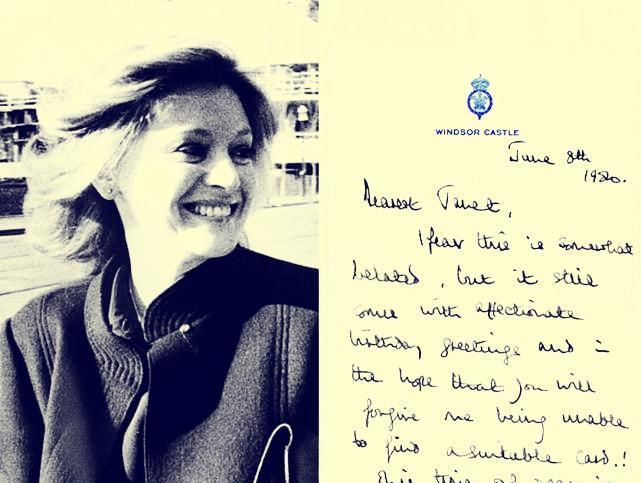 WINDSOR CASTLE
June 8th
1980.
Dearest Janet,
I fear this is somewhat
belated, but it still
comes with affectionate
birthday greetings and in
the hope that you will
forgive me being unable
to find a suitable card.!